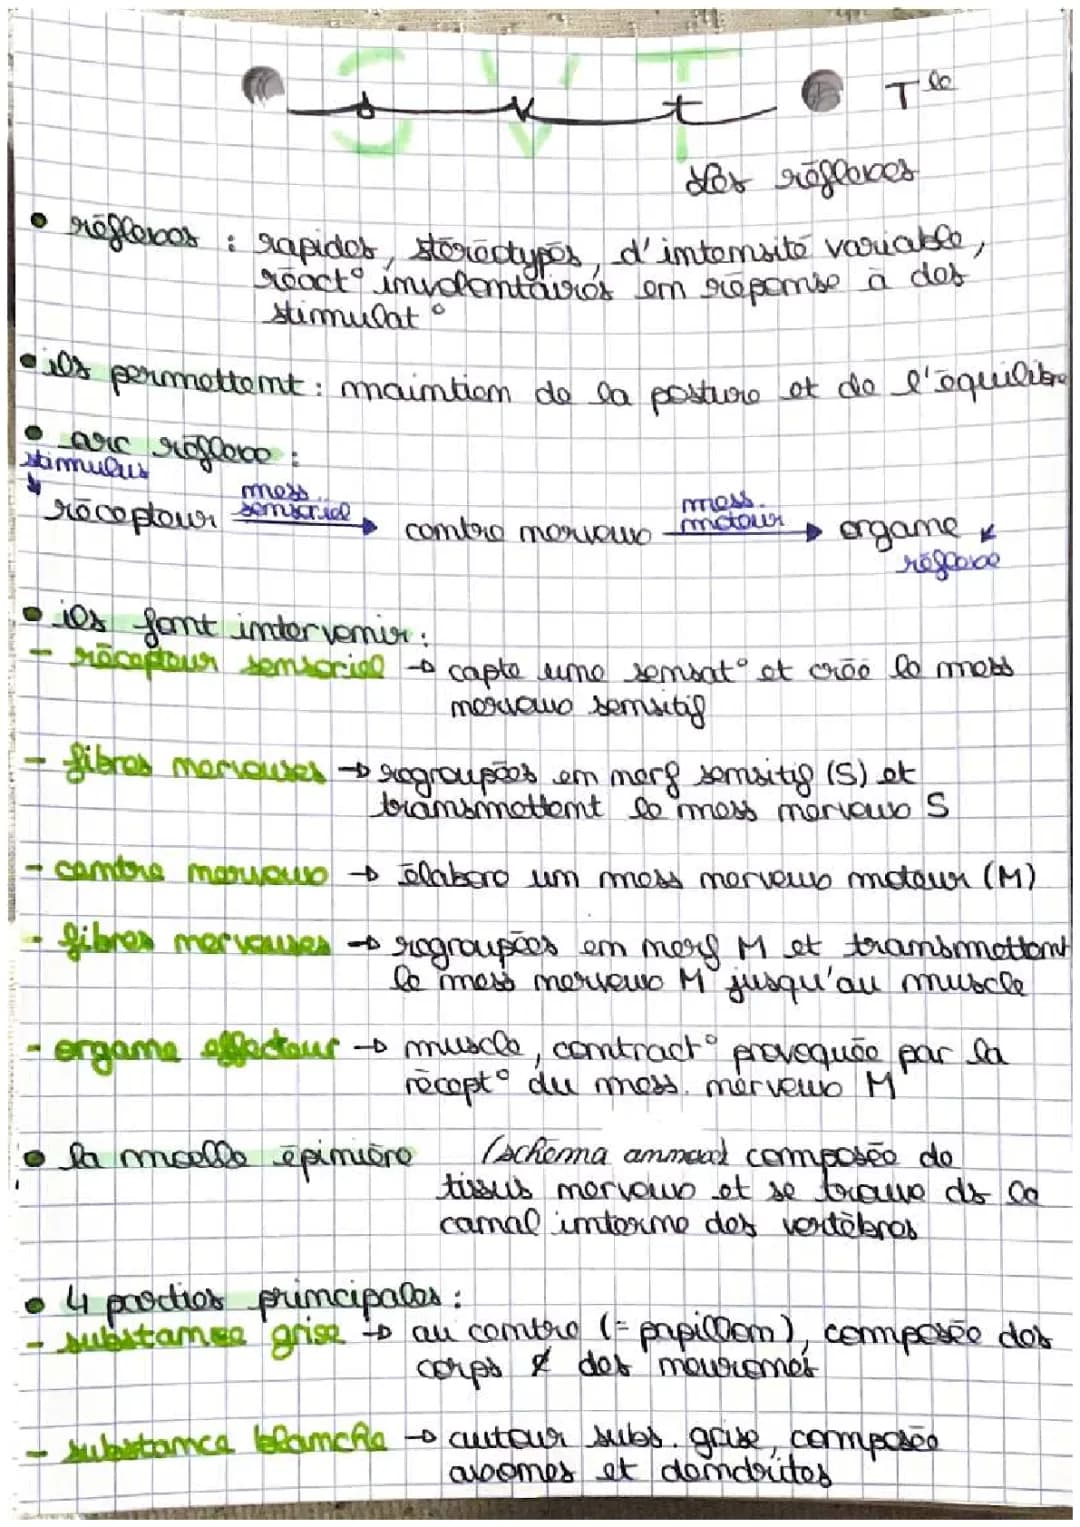 SVT
svt
Tle
Les réflexes
• réflexes : rapides, stéréotypés, d'intensité variable,
réact° involontaires en réponse à des
stimulat°
• ils permettent : maintien de la posture et de l'équilibre
• arc réflexe :
stimulus
récepteur mess. sensoriel → centre nerveux mess. moteur → organe
réflexe
• ils font intervenir :
- récepteur sensoriel → capte une sensat° et crée le mess
nerveux sensitif
- fibres nerveuses → regroupées en nerf sensitif (S) et
transmettent le mess nerveux S
- centre nerveux → élabore un mess nerveux moteur (M)
- fibres nerveuses → regroupées en nerf M et transmettent
le mess nerveux M jusqu'au muscle
- organe effecteur → muscle, contract° provoquée par la
récept° du mess. nerveux M
• la moelle épinière (schéma annexe) composée de
tissus nerveux et se trouve ds le
canal interne des vertèbres
• 4 parties principales :
- substance grise → au centre (= papillon), composée des
corps ¢ des neurones
- substance blanche → autour subs. grise, composée
axones et dendrites